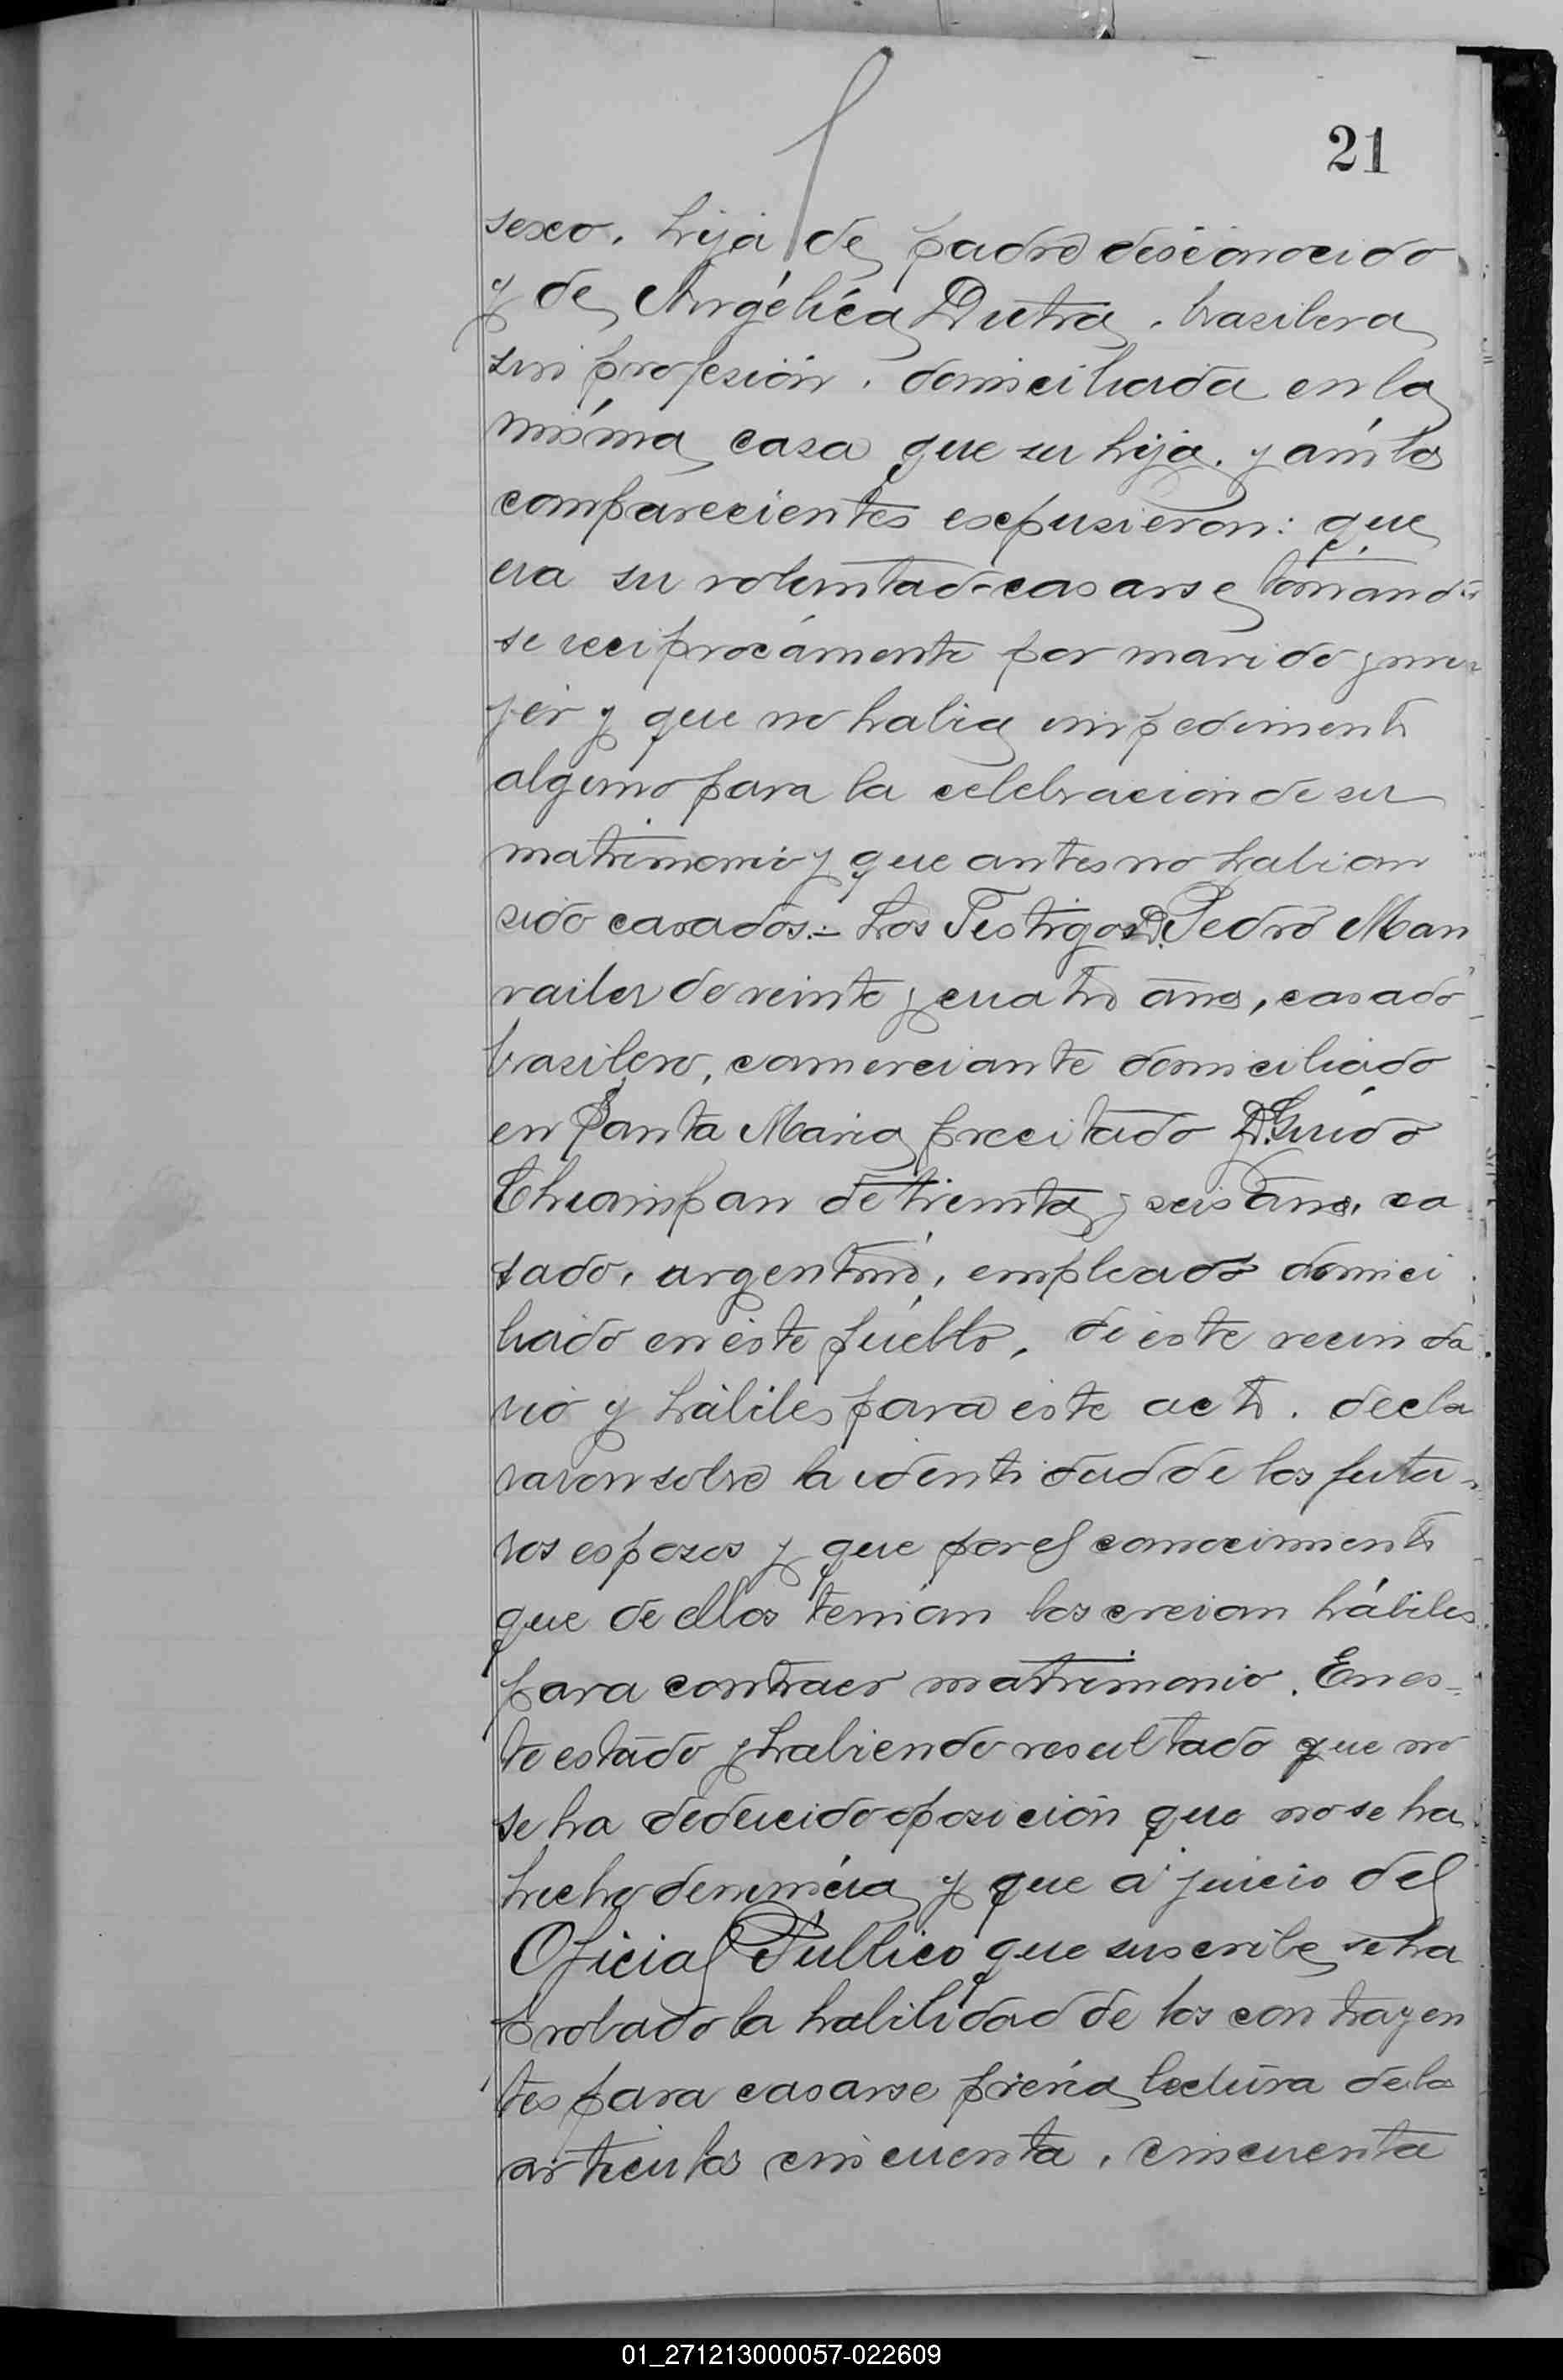 21
sexo, hija de padre desconocido
y de Angélica Dutra, brasilera
sin profesión, domiciliada en la
misma casa que su hija, y ambos
comparecientes expusieron: que
era su voluntad casarse tomando
se reciprocamente por marido y mu
jer y que no habia impedimento
alguno para la celebracion de su
matrimonio y que antes no habian
sido casados.- Los Testigos D. Pedro Man
de veinte y cuatro años, casado
brasilero, comerciante domiciliado
en Santa Maria precitado D. Guido
de treinta y seis años, ca
sado, argentino, empleado domici
liado en éste pueblo, de éste vecinda
rio y hábiles para éste acto, decla
raron sobre la identidad de los futu-
ros esposos y que por el conocimiento
que de ellos tenian los creian hábiles
para contraer matrimonio. En es-
te estado y habiendo resultado que no
se ha deducido oposición que no se ha
hecho denuncia y que a juicio del
Oficial Público que suscribe se ha
probado la habilidad de los contrayen
tes para casarse previa lectura de los
articulos cincuenta, cincuenta
01_271213000057-022609